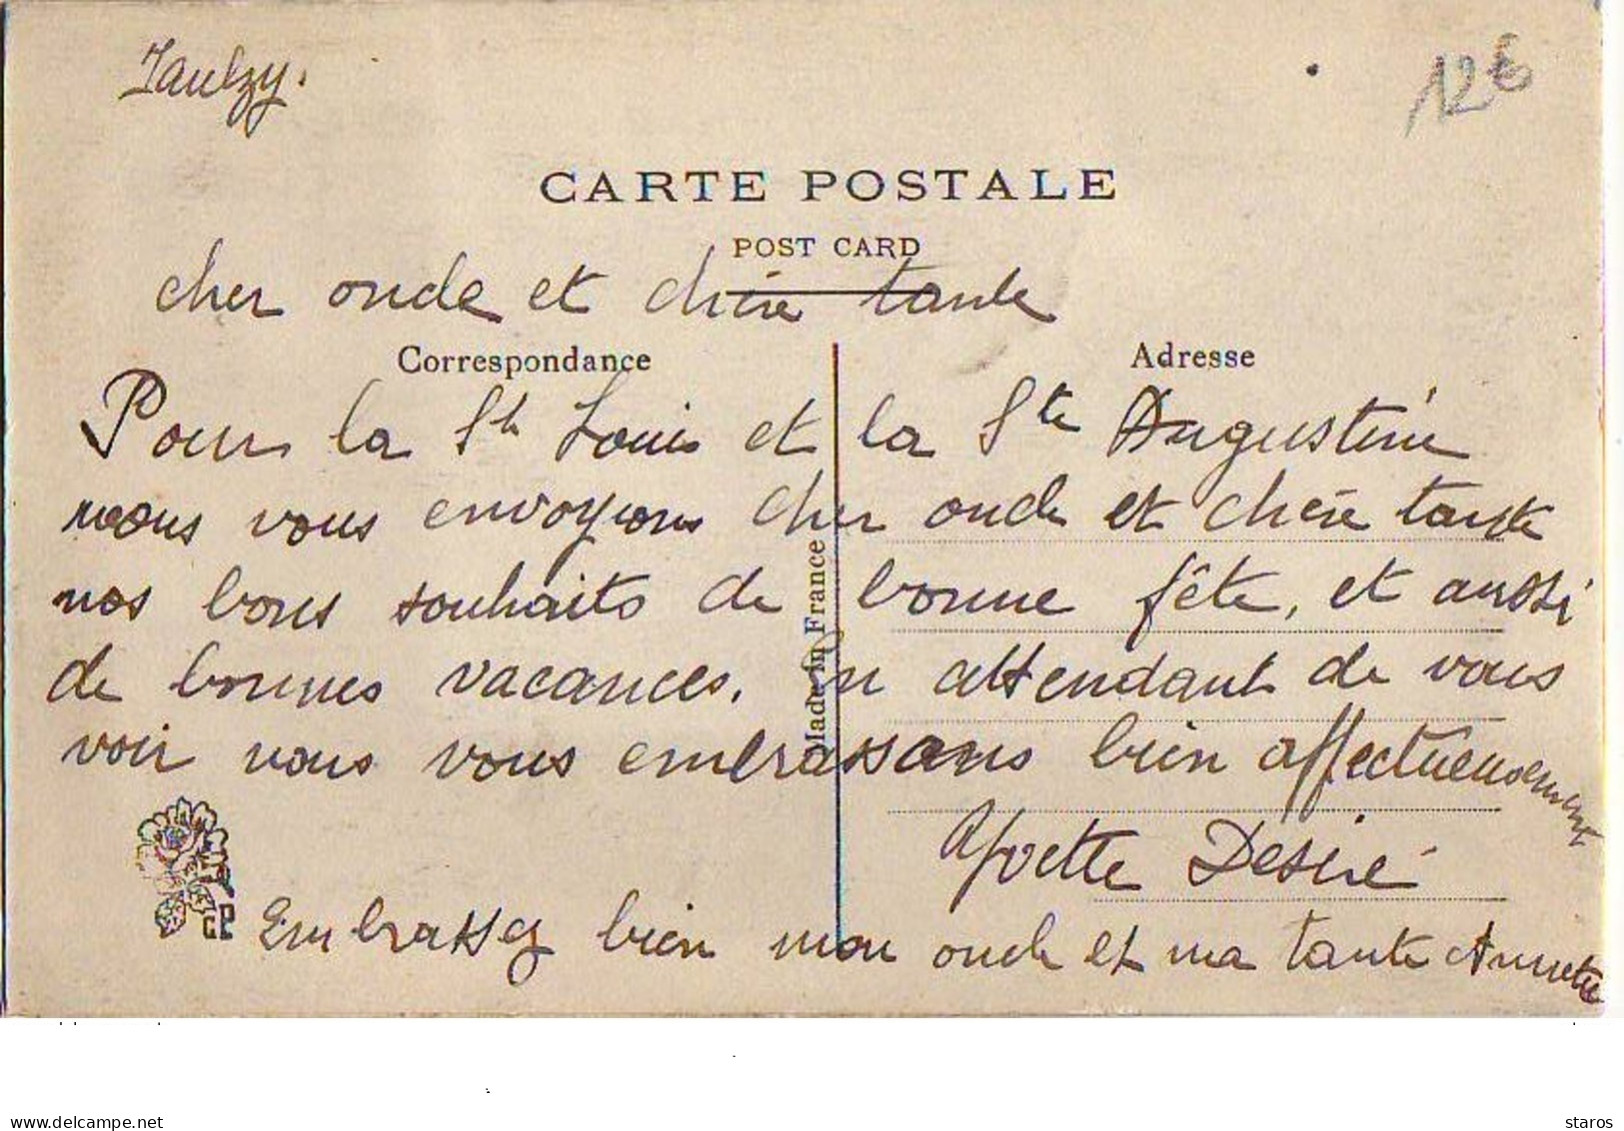 Jaulzy.
12€
CARTE POSTALE
POST CARD
cher oncle et chère tante
Correspondance
Adresse
Pour la St Louis et la Ste Augustine
nous vous envoyons cher oncle et chère tante
nos bons souhaits de bonne fête, et aussi
de bonnes vacances. En attendant de vous
voir nous vous embrassons bien affectueusement
Yvette Desiré
Embrassez bien mon oncle et ma tante Annette
Made in France
delcampe.net
staros